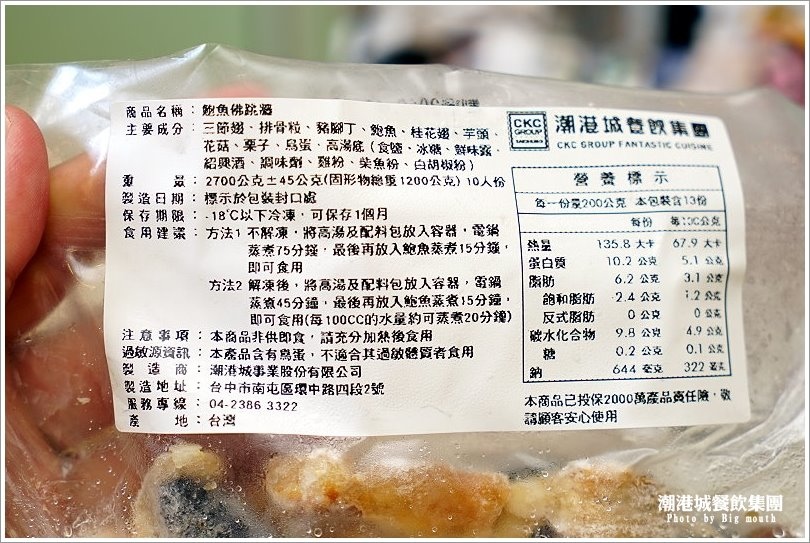 商品名稱：鮑魚佛跳牆
主要成分：三節翅、排骨粒、豬腳丁、鮑魚、桂花翅、芋頭、
花菇、栗子、鳥蛋、高湯底(食鹽、冰糖、鮮味露、
紹興酒、調味劑、雞粉、柴魚粉、白胡椒粉)
重量：2700公克±45公克(固形物總重1200公克) 10人份
製造日期：標示於包裝封口處
保存期限：-18℃以下冷凍，可保存1個月
食用建議：方法1 不解凍，將高湯及配料包放入容器，電鍋
蒸煮75分鐘，最後再放入鮑魚蒸煮15分鐘，
即可食用
方法2 解凍後，將高湯及配料包放入容器，電鍋
蒸煮45分鐘，最後再放入鮑魚蒸煮15分鐘，
即可食用(每100CC的水量約可蒸煮20分鐘)
注意事項：本商品非供即食，請充分加熱後食用
過敏源資訊：本產品含有鳥蛋，不適合其過敏體質者食用
製造商：潮港城事業股份有限公司
製造地址：台中市南屯區環中路四段2號
服務專線：04-2386 3322
產地：台灣
CKC GROUP
潮港城餐飲集團
CKC GROUP FANTASTIC CUISINE
營養標示
每一份量200公克 本包裝含13份
每份 每100公克
熱量 135.8 大卡 67.9 大卡
蛋白質 10.2 公克 5.1 公克
脂肪 6.2 公克 3.1 公克
飽和脂肪 2.4 公克 1.2 公克
反式脂肪 0 公克 0 公克
碳水化合物 9.8 公克 4.9 公克
糖 0.2 公克 0.1 公克
鈉 644 毫克 322 毫克
本商品已投保2000萬產品責任險，敬
請顧客安心使用
潮港城餐飲集團
Photo by Big mouth